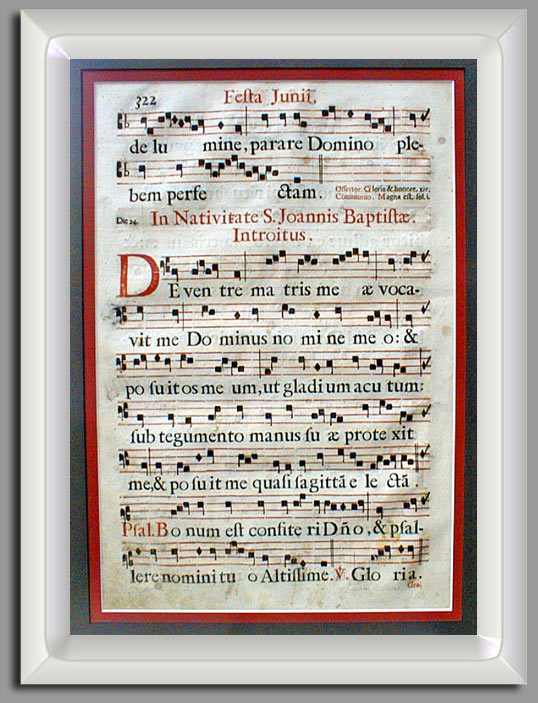 322 Festa Junii.
de lu mine, parare Domino ple-
bem perfe ctam. Offertor. Gloria & honore. xiv.
Communio. Magna est. fol. i.
Die 24. In Nativitate S. Joannis Baptistæ.
Introitus.
DE ven tre ma tris me æ voca-
vit me Do minus no mi ne me o: &
po suit os me um, ut gladi um acu tum:
sub tegumento manus su æ prote xit
me, & po su it me quasi sagittã e le ctã.
Psal. Bo num est confite ri Dño, & psal-
lere nomini tu o Altissime. ℣. Glo ria.